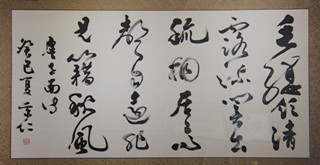 垂緌飲清
露流響出
疏桐居高
聲自遠非
是藉秋風
虞世南诗
癸巳夏